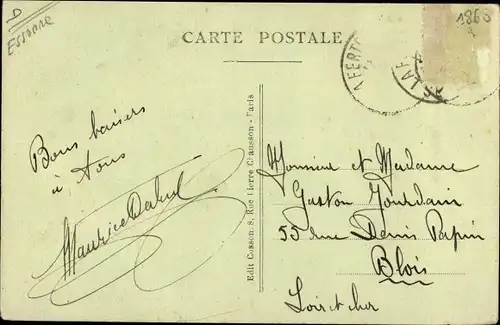 D
Essonne
CARTE POSTALE
1868
LA FERTE
LA F
Bons baisers
à tous
Maurice
Edit Cosson, 8, Rue Pierre Chausson - Paris
Monsieur et Madame
Gaston Jourdain
55 rue Denis Papin
Blois
Loir et cher